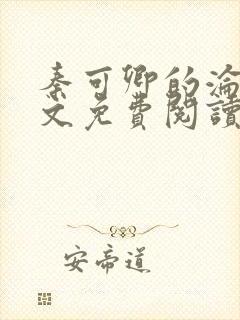 秦可卿的淪
文免費閱讀
安帝道